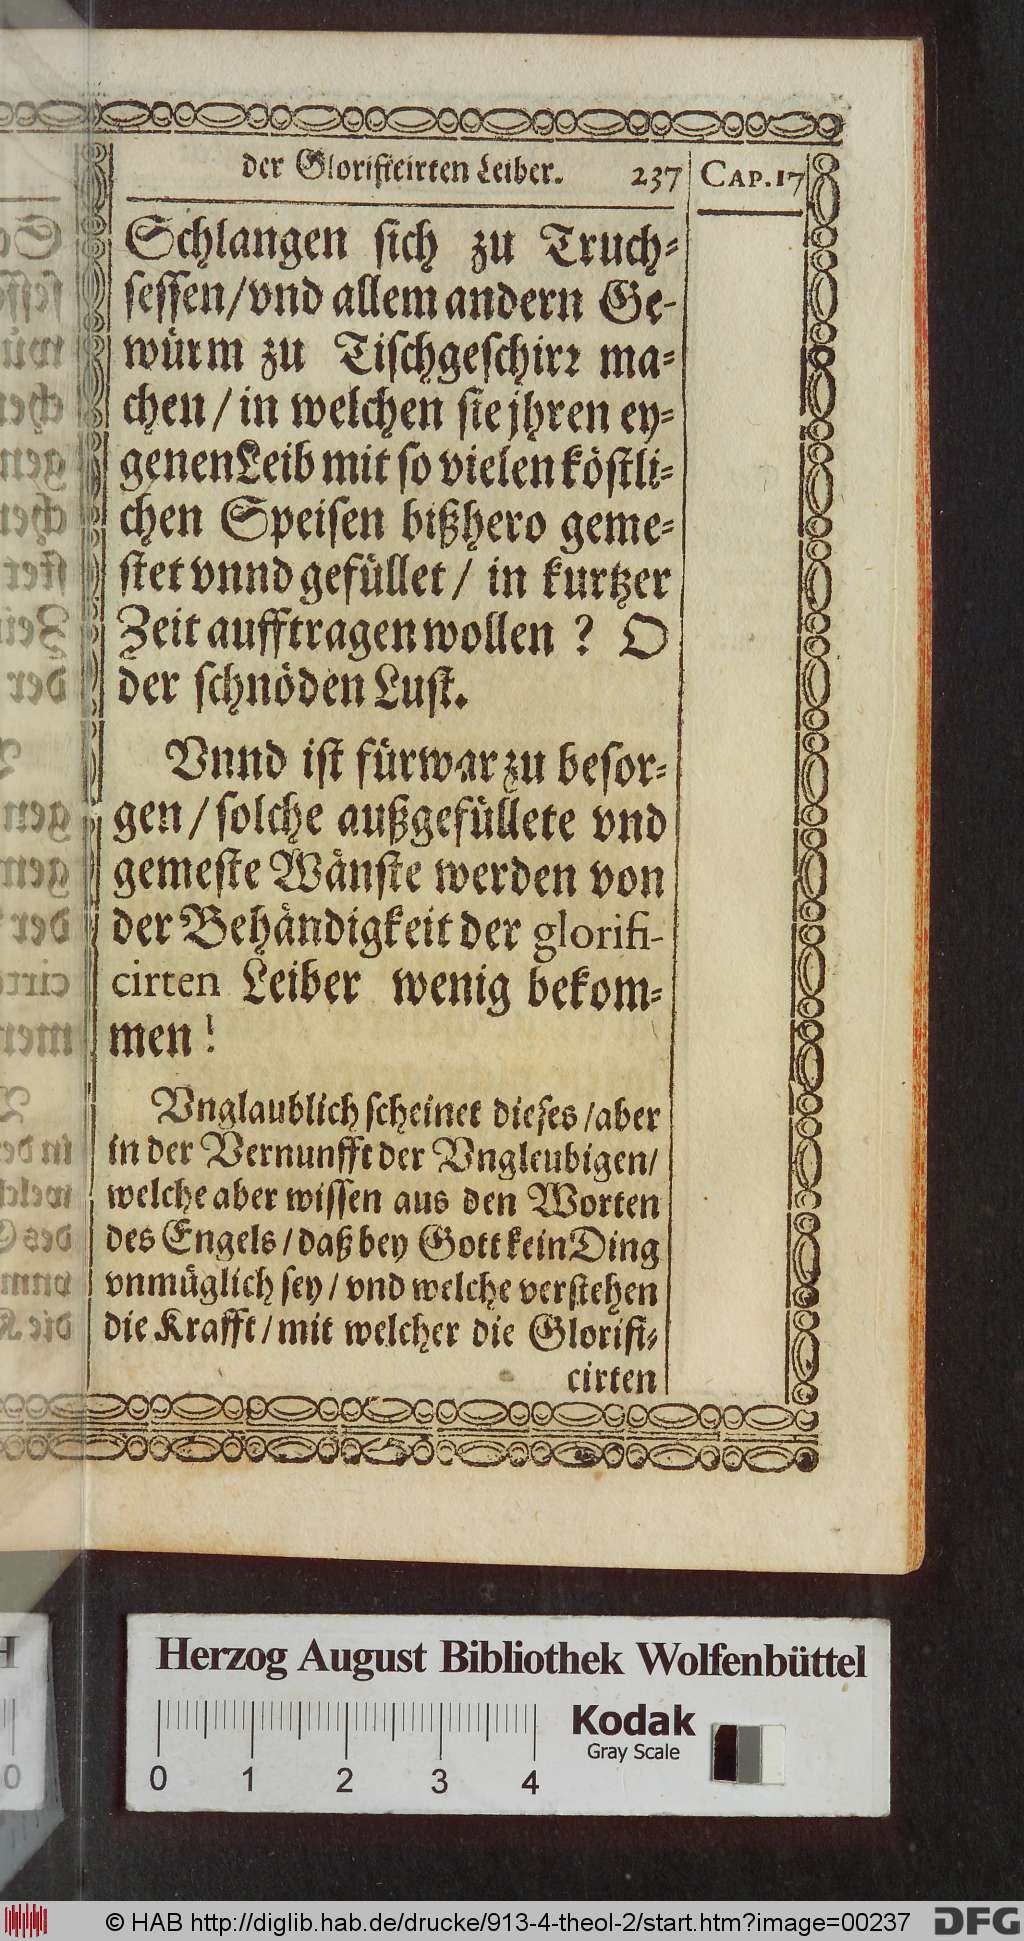 der Glorificirten Leiber. 237 CAP. 17
Schlangen sich zu Truch-
sessen/ vnd allem andern Ge-
würm zu Tischgeschirr ma-
chen / in welchen sie jhren ey-
genen Leib mit so vielen köstli-
chen Speisen bißhero geme-
stet vnnd gefüllet / in kurtzer
Zeit aufftragen wollen ? O
der schnöden Lust.
Vnnd ist fürwar zu besor-
gen / solche außgefüllete vnd
gemeste Wänste werden von
der Behändigkeit der glorifi-
cirten Leiber wenig bekom-
men !
Vnglaublich scheinet dieses / aber
in der Vernunfft der Vngleubigen/
welche aber wissen aus den Worten
des Engels / daß bey Gott kein Ding
vnmüglich sey / vnd welche verstehen
die Krafft / mit welcher die Glorifi-
cirten
Herzog August Bibliothek Wolfenbüttel
Kodak
Gray Scale
0 1 2 3 4
© HAB http://diglib.hab.de/drucke/913-4-theol-2/start.htm?image=00237 DFG